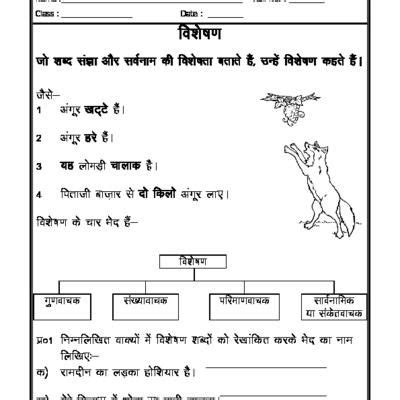 Class : Date :
विशेषण
जो शब्द संज्ञा और सर्वनाम की विशेषता बताते हैं, उन्हें विशेषण कहते हैं।
जैसे–
1 अंगूर खट्टे हैं।
2 अंगूर हरे हैं।
3 यह लोमड़ी चालाक है।
4 पिताजी बाज़ार से दो किलो अंगूर लाए।
विशेषण के चार भेद हैं–
विशेषण
गुणवाचक संख्यावाचक परिमाणवाचक सार्वनामिक
या संकेतवाचक
प्र०1 निम्नलिखित वाक्यों में विशेषण शब्दों को रेखांकित करके भेद का नाम
लिखिए:-
क) रामदीन का लड़का होशियार है।